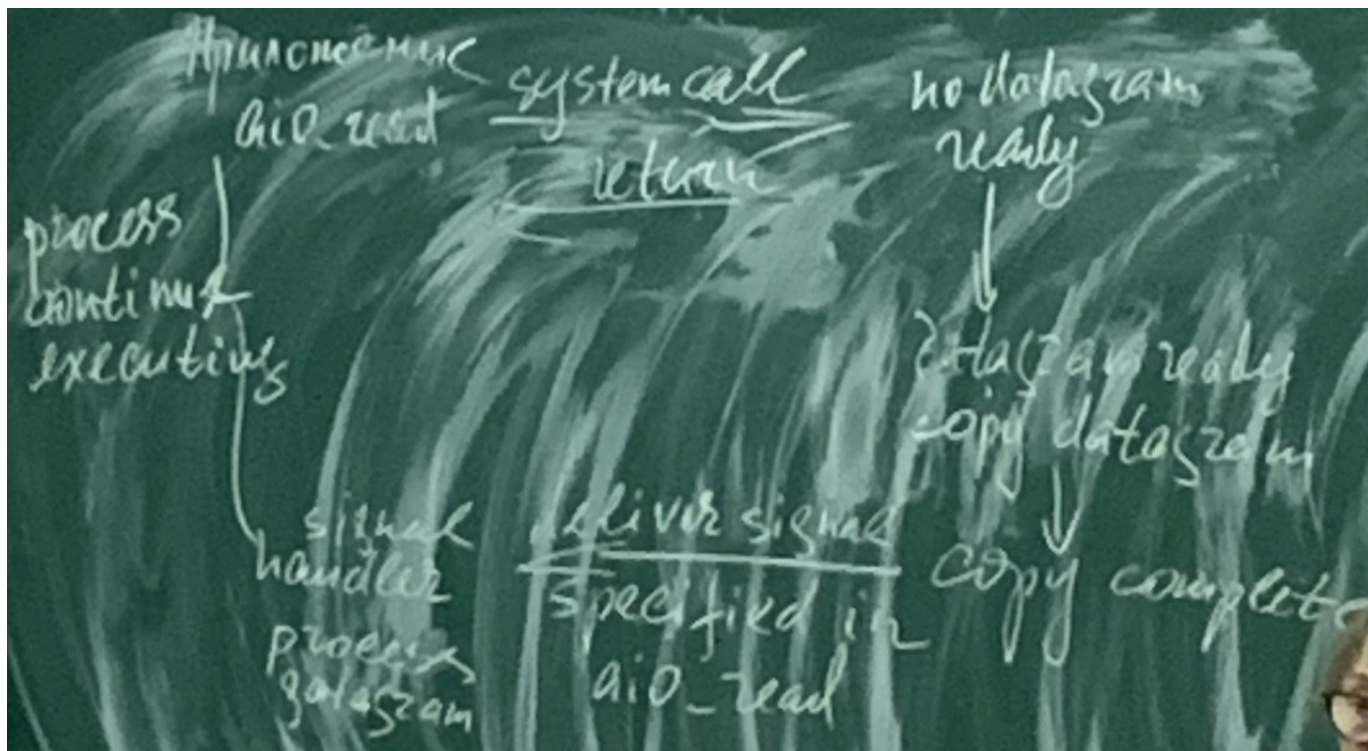 Приложение
aio_read
system call
return
no datagram
ready
process
continue
executing
datagram ready
copy datagram
signal
handler
process
datagram
deliver signal
specified in
aio_read
copy complete